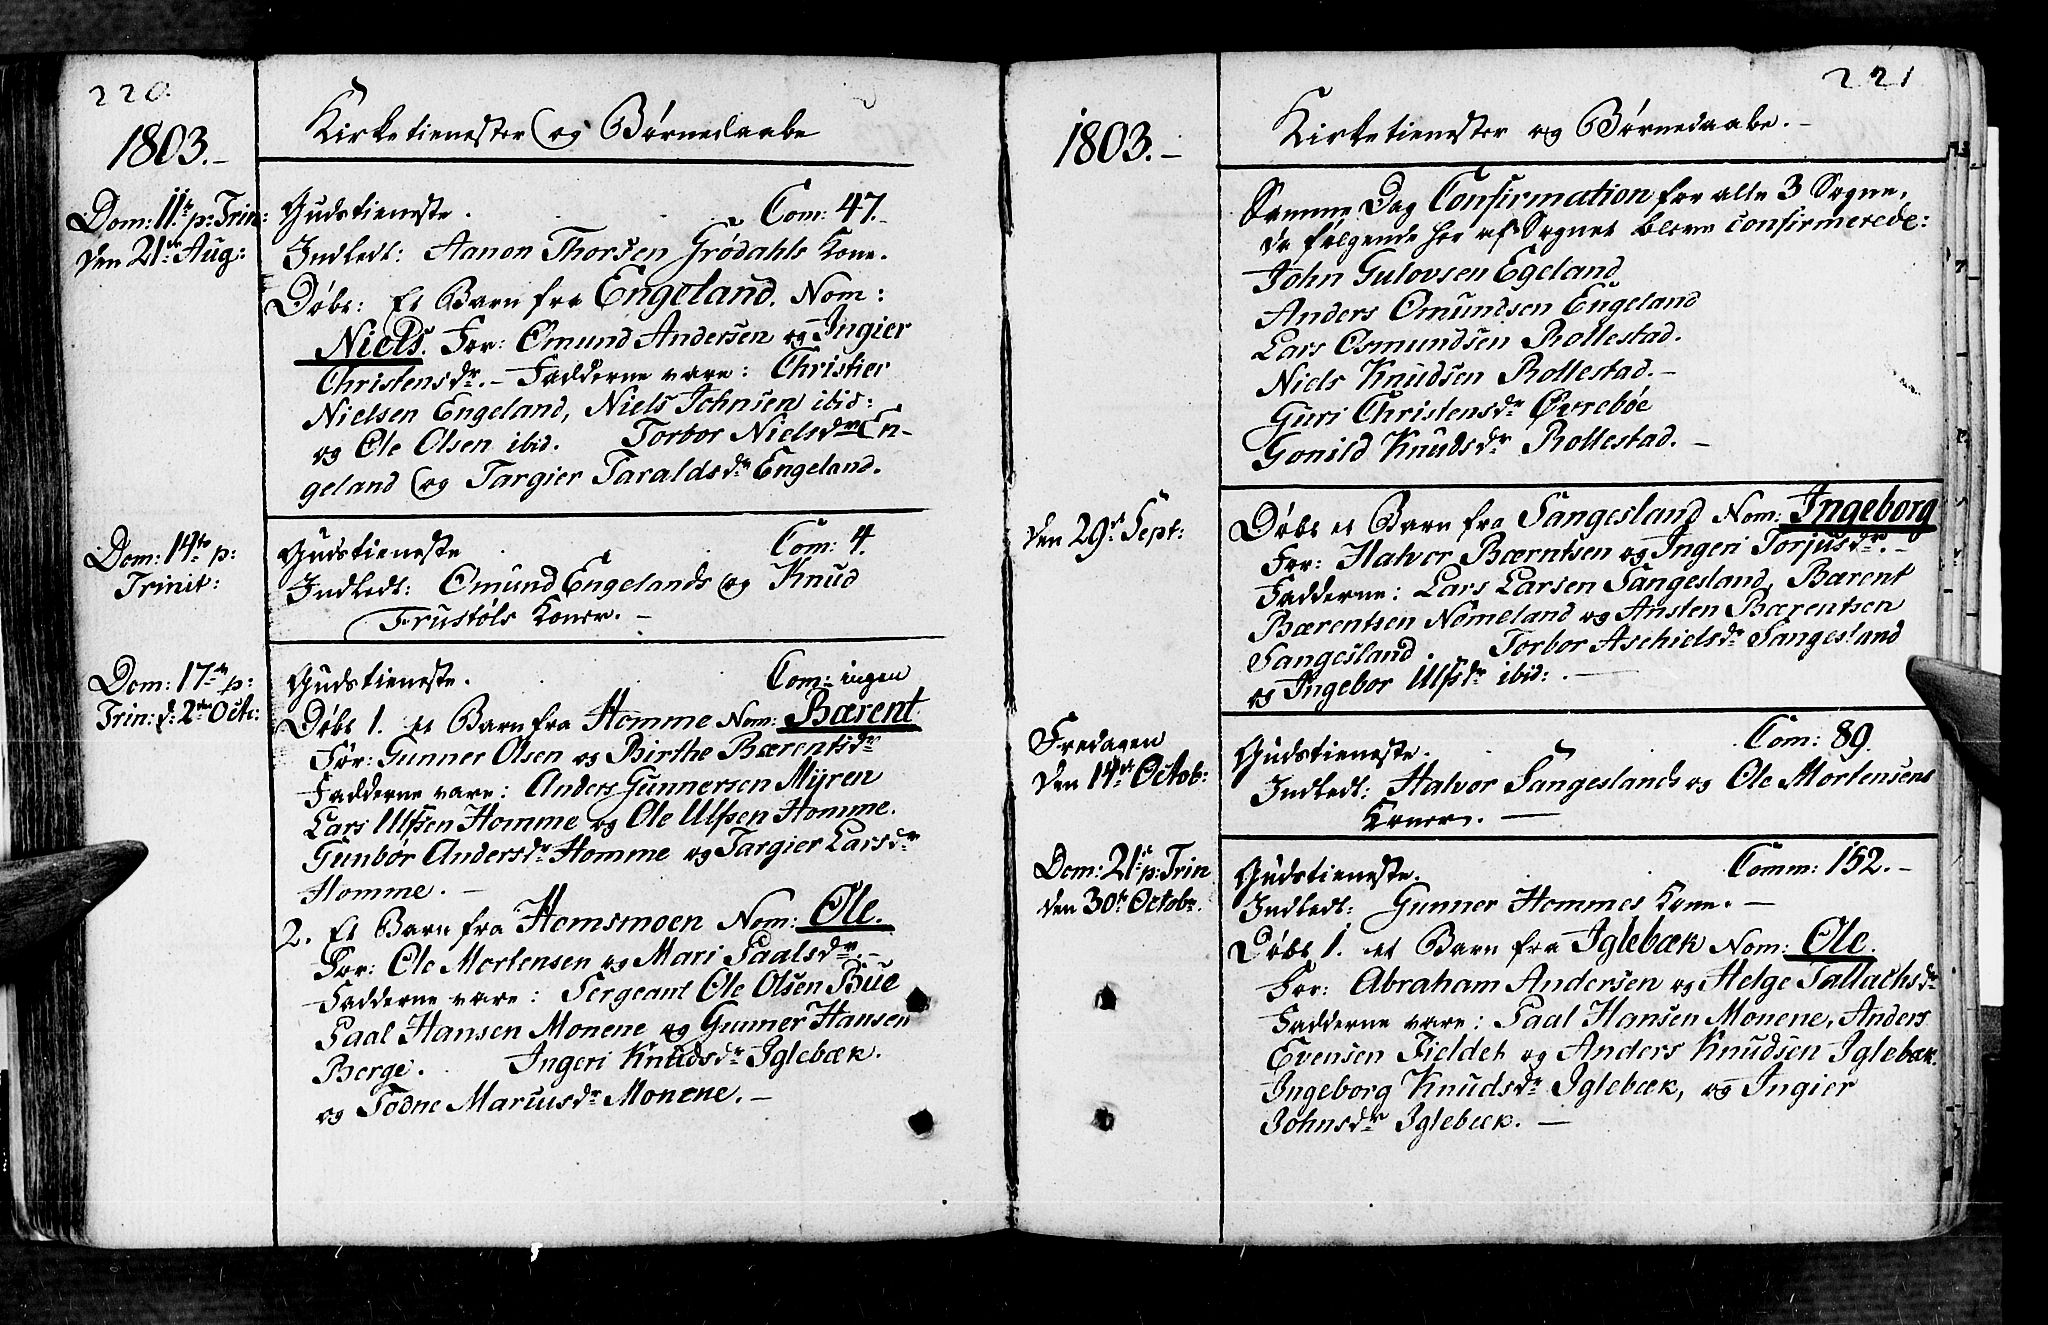 220.
1803.-
Kirketienester og Børnedaabe
Dom: 11te p: Trin:
den 21de Aug:
Gudstieneste. Com: 47.-
Indledt: Aanon Thorsen Grödahls Kone.
Döbt: Et Barn fra Engeland. Nom:
Niels. For: Omund Andersen og Ingier
Christensdr.- Fadderne vare: Christier
Nielsen Engeland, Niels Johnsen ibid:
og Ole Olsen ibid. Torbor Nielsdr En-
geland og Targier Taraldsdr Engeland.
Dom: 14te p:
Trinit:
Gudstieneste Com: 4.
Indledt: Omund Engelands og Knud
Frustöls Koner. -
Dom: 17de p:
Trin: d: 2den Octr:
Gudstieneste. Com: ingen
Döbt 1. et Barn fra Homme Nom: Bærent
For: Gunner Olsen og Birthe Bærentsdr
Fadderne vare: Anders Gunnersen Myren
Lars Ulfsen Homme og Ole Ulfsen Homme.
Gunbör Andersdr Homme og Targier Larsdr
Homme. -
2. Et Barn fra Homsmoen Nom: Ole.
For: Ole Mortensen og Mari Paalsdr.-
Fadderne vare: Sergeant Ole Olsen Bue
Paal Hansen Monene og Gunner Hansen
Berge. Ingeri Knudsdr Iglebæk.
og Todne Mariusdr Monene. -
221
1803.-
Kirketienester og Børnedaabe.-
Samme Dag Confirmation for alle 3 Sogne,
da følgende her af Sognet bleve confirmerede:
John Gulovsen Egeland
Anders Omundsen Engeland
Lars Osmundsen Rollestad.
Niels Knudsen Rollestad.-
Guri Christensdr Øvreböe
Gonild Knudsdr Rollestad.-
den 29de Sept:
Döbt et Barn fra Sangesland Nom: Ingeborg
For: Halvor Bærntsen og Ingeri Torjusdr.-
Fadderne: Lars Larsen Sangesland, Bærent
Bærentsen Nomeland og Ansten Bærentsen
Sangesland. Torbor Aschielsdr Sangesland
og Ingebor Ulfsdr ibid:. -
Fredagen
den 14de Octob:
Gudstieneste. Com: 89.
Indledt: Halvor Sangeslands og Ole Mortensens
Koner. -
Dom: 21de p: Trin
den 30te Octobr.
Gudstieneste. Comm: 152.-
Indledt: Gunner Hommes Kone. -
Döbt 1. et Barn fra Iglebæk Nom: Ole.
For: Abraham Andersen og Helge Tallachsdr
Fadderne vare: Paal Hansen Monene, Anders
Evensen Fieldet og Anders Knudsen Iglebæk.
Ingeborg Knudsdr Iglebæk, og Ingier
Johnsdr Iglebæk. -